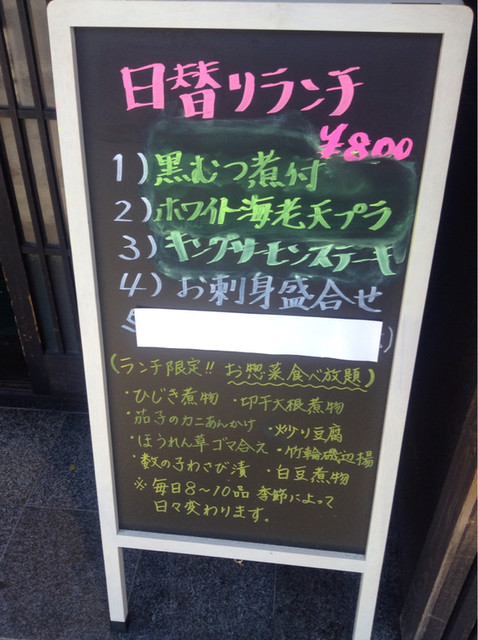 日替りランチ
¥800
1)黒むつ煮付
2)ホワイト海老天プラ
3)キングサーモンステーキ
4)お刺身盛合せ
5
)
(ランチ限定!! お惣菜食べ放題)
・ひじき煮物 ・切干大根煮物
・茄子のカニあんかけ ・炒り豆腐
・ほうれん草ゴマ合え ・竹輪磯辺揚
・数の子わさび漬 ・白豆煮物
※毎日8〜10品 季節によって
日々変わります。